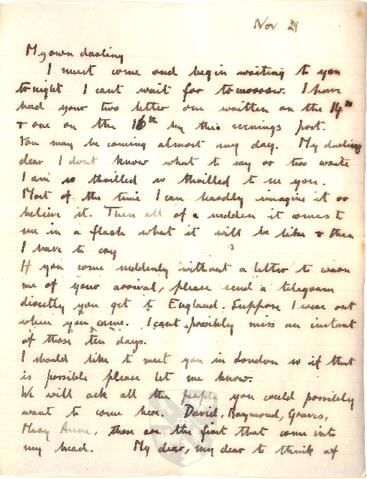 Nov 29
My own darling
I must come and begin writing to you
to night I cant wait for tomorrow. I have
had your two letter one written on the 14th
& one on the 16th by this evenings post.
You may be coming almost any day. My darling
dear I dont know what to say or two write
I am so thrilled so thrilled to see you.
Most of the time I can hardly imagine it or
believe it. Then all of a sudden it comes to
me in a flash what it will be like & then
I have to cry
If you come suddenly without a letter to warn
me of your arrival, please send a telegram
directly you get to England. Suppose I were out
when you came. I cant possibly miss an instant
of those ten days.
I should like to meet you in London so if that
is possible please let me know.
We will ask all the people you could possibly
want to come here. David, Raymond, Graves,
Mary Anne, those are the first that come into
my head. My dear, my dear to think of